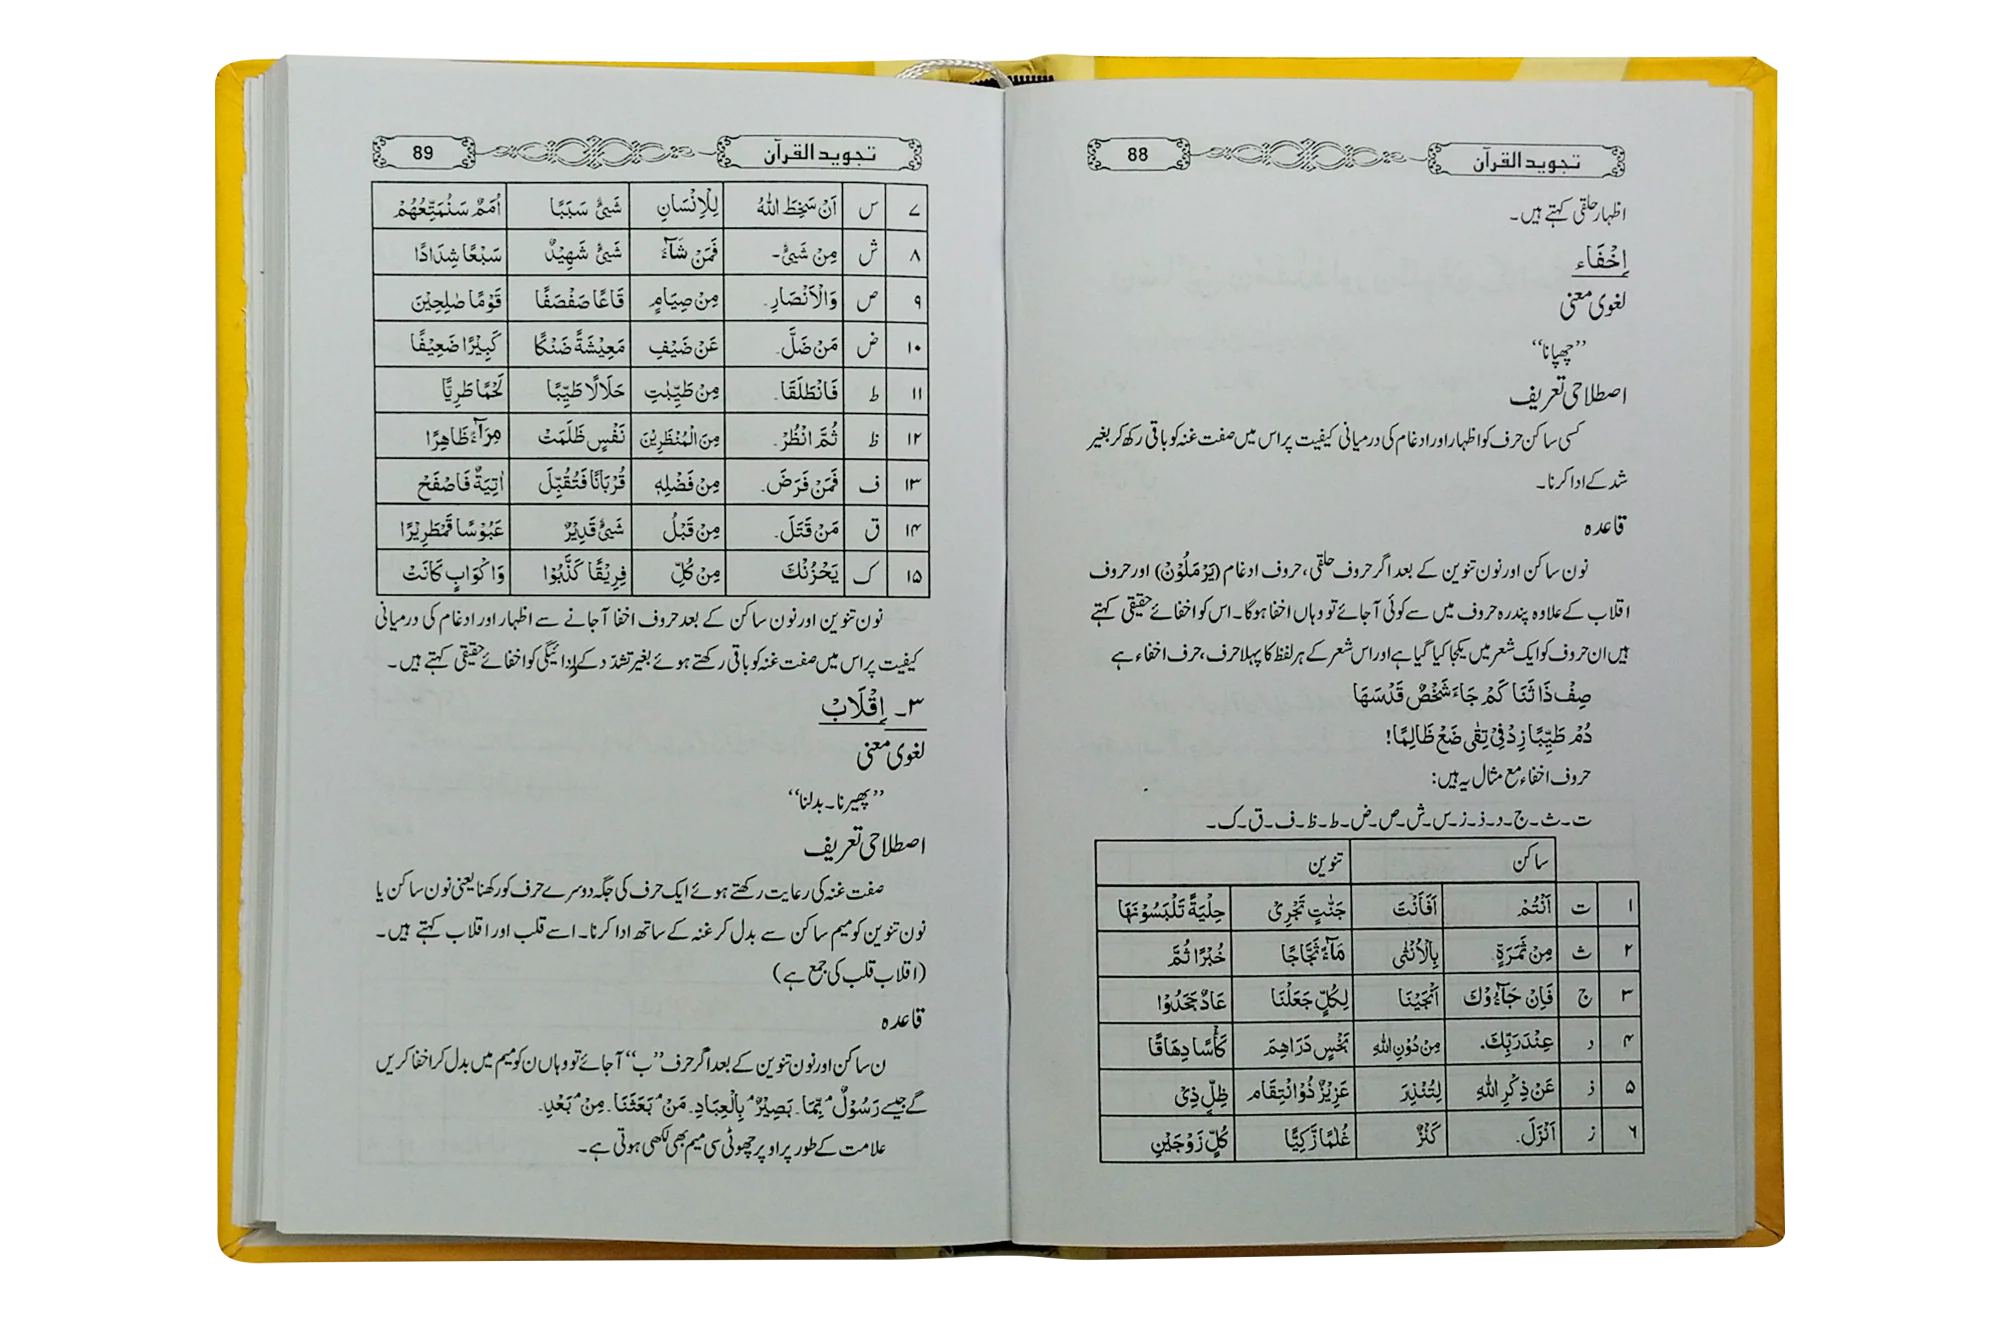 تجوید القرآن 88
اظہار حلقی کہتے ہیں۔
إِخْفَاء
لغوی معنی
’’چھپانا‘‘
اصطلاحی تعریف
کسی ساکن حرف کو اظہار اور ادغام کی درمیانی کیفیت پر اس میں صفت غنہ کو باقی رکھ کر بغیر
شد کے ادا کرنا۔
قاعدہ
نون ساکن اور نون تنوین کے بعد اگر حروف حلقی، حروف ادغام (یَرْمَلُوْنَ) اور حروف
اقلاب کے علاوہ پندرہ حروف میں سے کوئی آجائے تو وہاں اخفا ہوگا۔ اس کو اخفائے حقیقی کہتے
ہیں ان حروف کو ایک شعر میں یکجا کیا گیا ہے اور اس شعر کے ہر لفظ کا پہلا حرف، حرف اخفاء ہے
صِفْ ذَا ثَنَا كَمْ جَاءَ شَخْصٌ قَدْ سَهَا
دُمْ طَيِّبًا زِدْ فِيْ تُقٰى ضَعْ ظَالِمًا!
حروف اخفاء مع مثال یہ ہیں:
ت۔ث۔ج۔د۔ذ۔ز۔س۔ش۔ص۔ض۔ط۔ظ۔ف۔ق۔ک۔
ساکن تنوین
۱ ت اَنْتُمْ اَفَاَنْتَ جَنّٰتٍ تَجْرِيْ حِلْيَةً تَلْبَسُوْنَهَا
۲ ث مِنْ ثَمَرَةٍ۔ بِالْاُنْثٰى مَآءً ثَجَّاجًا خُبْرًا ثُمَّ
۳ ج فَاِنْ جَآءُوْكَ اَنْجَيْنَا لِكُلٍّ جَعَلْنَا عَادٌ جَحَدُوْا
۴ د عِنْدَ رَبِّكَ۔ مِنْ دُوْنِ اللهِ بَخْسٍ دَرَاهِمَ كَأْسًا دِهَاقًا
۵ ذ عَنْ ذِكْرِ اللهِ لِتُنْذِرَ عَزِيْزٌ ذُوْ انْتِقَام ظِلٍّ ذِيْ
۶ ز اَنْزَلَ۔ كَنْزٌ غُلٰمًا زَكِيًّا كُلٍّ زَوْجَيْنِ
تجوید القرآن 89
۷ س اَنْ سَخِطَ اللهُ لِلْاِنْسَانِ شَيْءٌ سَبَبًا اُمَمٌ سَنُمَتِّعُهُمْ
۸ ش مِنْ شَيْءٍ۔ فَمَنْ شَآءَ شَيْءٌ شَهِيْدٌ سَبْعًا شِدَادًا
۹ ص وَالْاَنْصَارِ۔ مِنْ صِيَامٍ قَاعًا صَفْصَفًا قَوْمًا صٰلِحِيْنَ
۱۰ ض مَنْ ضَلَّ۔ عَنْ ضَيْفِ مَعِيْشَةً ضَنْكًا كَبِيْرًا ضَعِيْفًا
۱۱ ط فَانْطَلَقَا۔ مِنْ طَيِّبٰتِ حَلَالًا طَيِّبًا لَحْمًا طَرِيًّا
۱۲ ظ ثُمَّ انْظُرْ۔ مِنَ الْمُنْظَرِيْنَ نَفْسٍ ظَلَمَتْ مِرَآءً ظَاهِرًا
۱۳ ف فَمَنْ فَرَضَ۔ مِنْ فَضْلِهٖ قُرْبَانًا فَتُقُبِّلَ اٰتِيَةٌ فَاصْفَحْ
۱۴ ق مَنْ قَتَلَ۔ مِنْ قَبْلُ شَيْءٌ قَدِيْرٌ عَبُوْسًا قَمْطَرِيْرًا
۱۵ ک يَحْزُنْكَ مِنْ كُلِّ فِرِيْقًا كَذَّبُوْا وَاَكْوَابٍ كَانَتْ
نون تنوین اور نون ساکن کے بعد حروف اخفا آجانے سے اظہار اور ادغام کی درمیانی
کیفیت پر اس میں صفت غنہ کو باقی رکھتے ہوئے بغیر تشدّد کے ادائیگی کو اخفائے حقیقی کہتے ہیں۔
۳۔ إِقْلَابْ
لغوی معنی
’’پھیرنا۔بدلنا‘‘
اصطلاحی تعریف
صفت غنہ کی رعایت رکھتے ہوئے ایک حرف کی جگہ دوسرے حرف کو رکھنا یعنی نون ساکن یا
نون تنوین کو میم ساکن سے بدل کر غنہ کے ساتھ ادا کرنا۔ اسے قلب اور اقلاب کہتے ہیں۔
(اقلاب قلب کی جمع ہے)
قاعدہ
ن ساکن اور نون تنوین کے بعد اگر حرف ’’ب‘‘ آجائے تو وہاں ن کو میم میں بدل کر اخفا کریں
گے جیسے رَسُوْلٌۢ بِمَا۔ بَصِيْرٌۢ بِالْعِبَادِ۔ مَنْۢ بَعَثَنَا۔ مِنْۢ بَعْدِ۔
علامت کے طور پر اوپر چھوٹی سی میم بھی لکھی ہوتی ہے۔